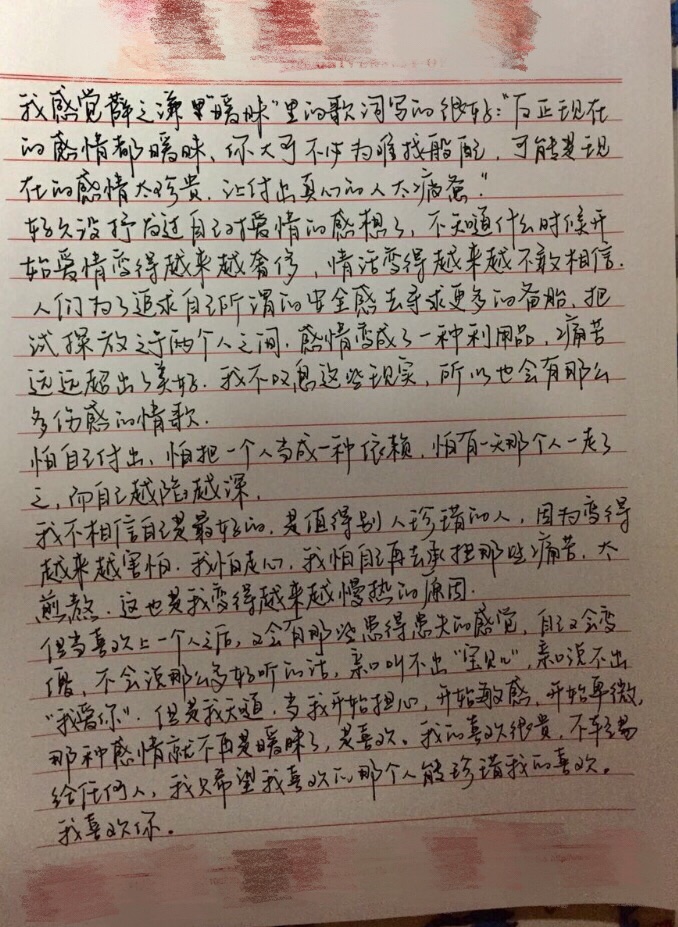 我感觉薛之谦里“暧昧”里的歌词写的很好：“反正现在
的感情都暧昧，你大可不必为难找般配，可能是现
在的感情太珍贵，让付出真心的人太疲惫。”
好久没抒发过自己对爱情的感想了，不知道什么时候开
始爱情变得越来越奢侈，情话变得越来越不敢相信。
人们为了追求自己所谓的安全感去寻求更多的备胎，把
试探放之于两个人之间，感情变成了一种利用品，痛苦
远远超出了美好。我不叹息这些现实，所以也会有那么
多伤感的情歌。
怕自己付出、怕把一个人当成一种依赖，怕有一天那个人一走了
之，而自己越陷越深。
我不相信自己是最好的，是值得别人珍惜的人，因为变得
越来越害怕。我怕走心，我怕自己再去承担那些痛苦，太
煎熬。这也是我变得越来越慢热的原因。
但当喜欢上一个人之后，又会有那些患得患失的感觉，自己又会变
傻，不会说那么多好听的话，亲口叫不出“宝贝儿”，亲口说不出
“我爱你”。但是我知道，当我开始担心，开始敏感，开始卑微，
那种感情就不再是暧昧了，是喜欢。我的喜欢很贵，不轻易
给任何人，我只希望我喜欢的那个人能珍惜我的喜欢。
我喜欢你。